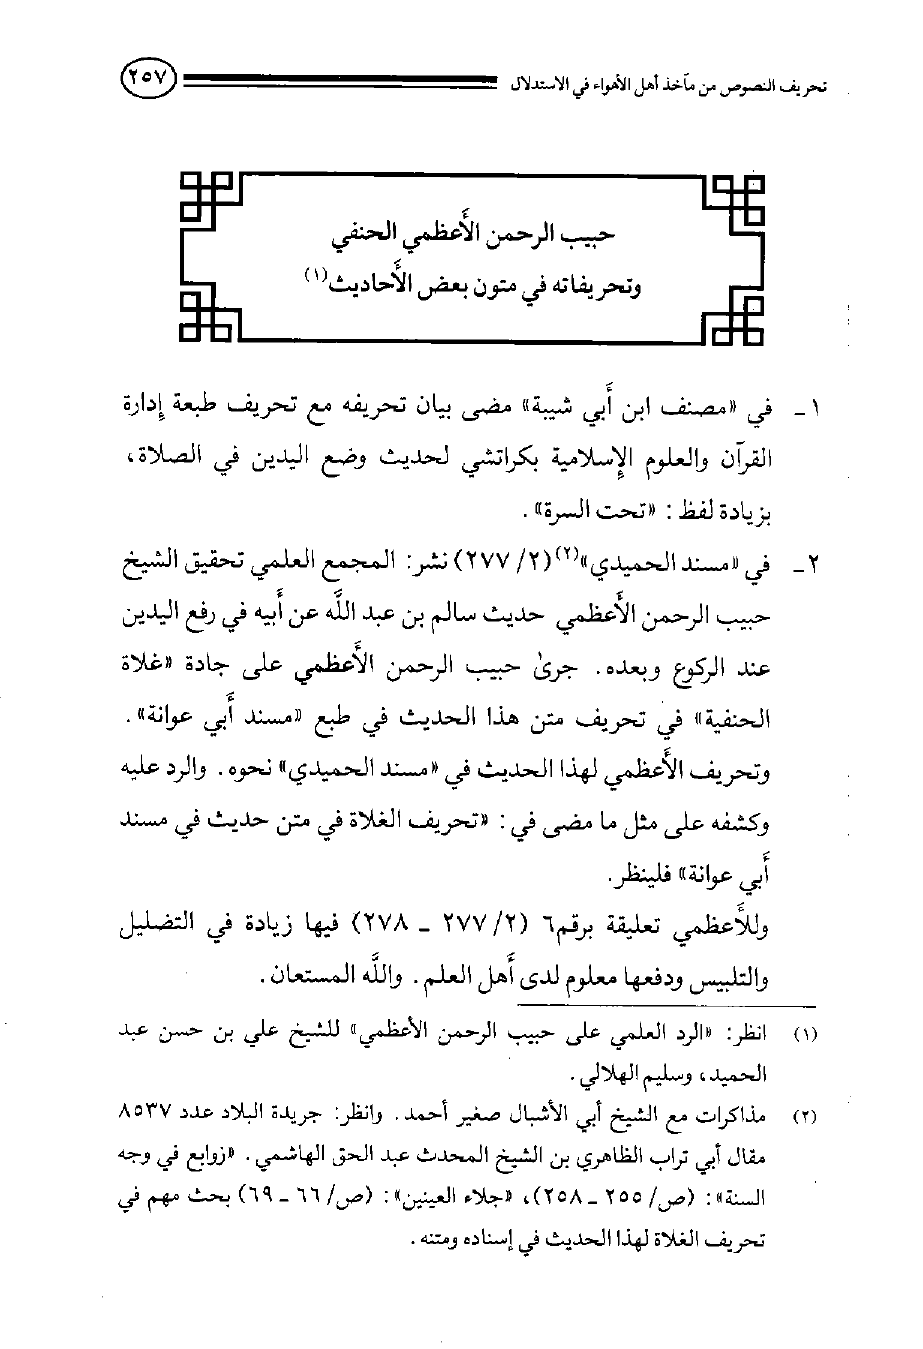 تحريف النصوص من مآخذ أهل الأهواء في الاستدلال ٢٥٧
حبيب الرحمن الأَعظمي الحنفي
وتحريفاته في متون بعض الأَحاديث(١)
١ـ في «مصنف ابن أَبي شيبة» مضى بيان تحريفه مع تحريف طبعة إدارة
القرآن والعلوم الإسلامية بكراتشي لحديث وضع اليدين في الصلاة،
بزيادة لفظ: «تحت السرة».
٢ـ في «مسند الحميدي»(٢) (٢/ ٢٧٧) نشر: المجمع العلمي تحقيق الشيخ
حبيب الرحمن الأَعظمي حديث سالم بن عبد اللَّه عن أَبيه في رفع اليدين
عند الركوع وبعده. جرىٰ حبيب الرحمن الأَعظمي على جادة «غلاة
الحنفية» في تحريف متن هذا الحديث في طبع «مسند أَبي عوانة».
وتحريف الأَعظمي لهذا الحديث في «مسند الحميدي» نحوه. والرد عليه
وكشفه على مثل ما مضى في: «تحريف الغلاة في متن حديث في مسند
أَبي عوانة» فلينظر.
وللأَعظمي تعليقة برقم٦ (٢/ ٢٧٧ ـ ٢٧٨) فيها زيادة في التضليل
والتلبيس ودفعها معلوم لدى أَهل العلم. واللَّه المستعان.
(١) انظر: «الرد العلمي على حبيب الرحمن الأعظمي» للشيخ علي بن حسن عبد
الحميد، وسليم الهلالي.
(٢) مذاكرات مع الشيخ أبي الأشبال صغير أحمد. وانظر: جريدة البلاد عدد ٨٥٣٧
مقال أبي تراب الظاهري بن الشيخ المحدث عبد الحق الهاشمي. «زوابع في وجه
السنة»: (ص/ ٢٥٥ ـ ٢٥٨)، «جلاء العينين»: (ص/ ٦٦ ـ ٦٩) بحث مهم في
تحريف الغلاة لهذا الحديث في إسناده ومتنه.